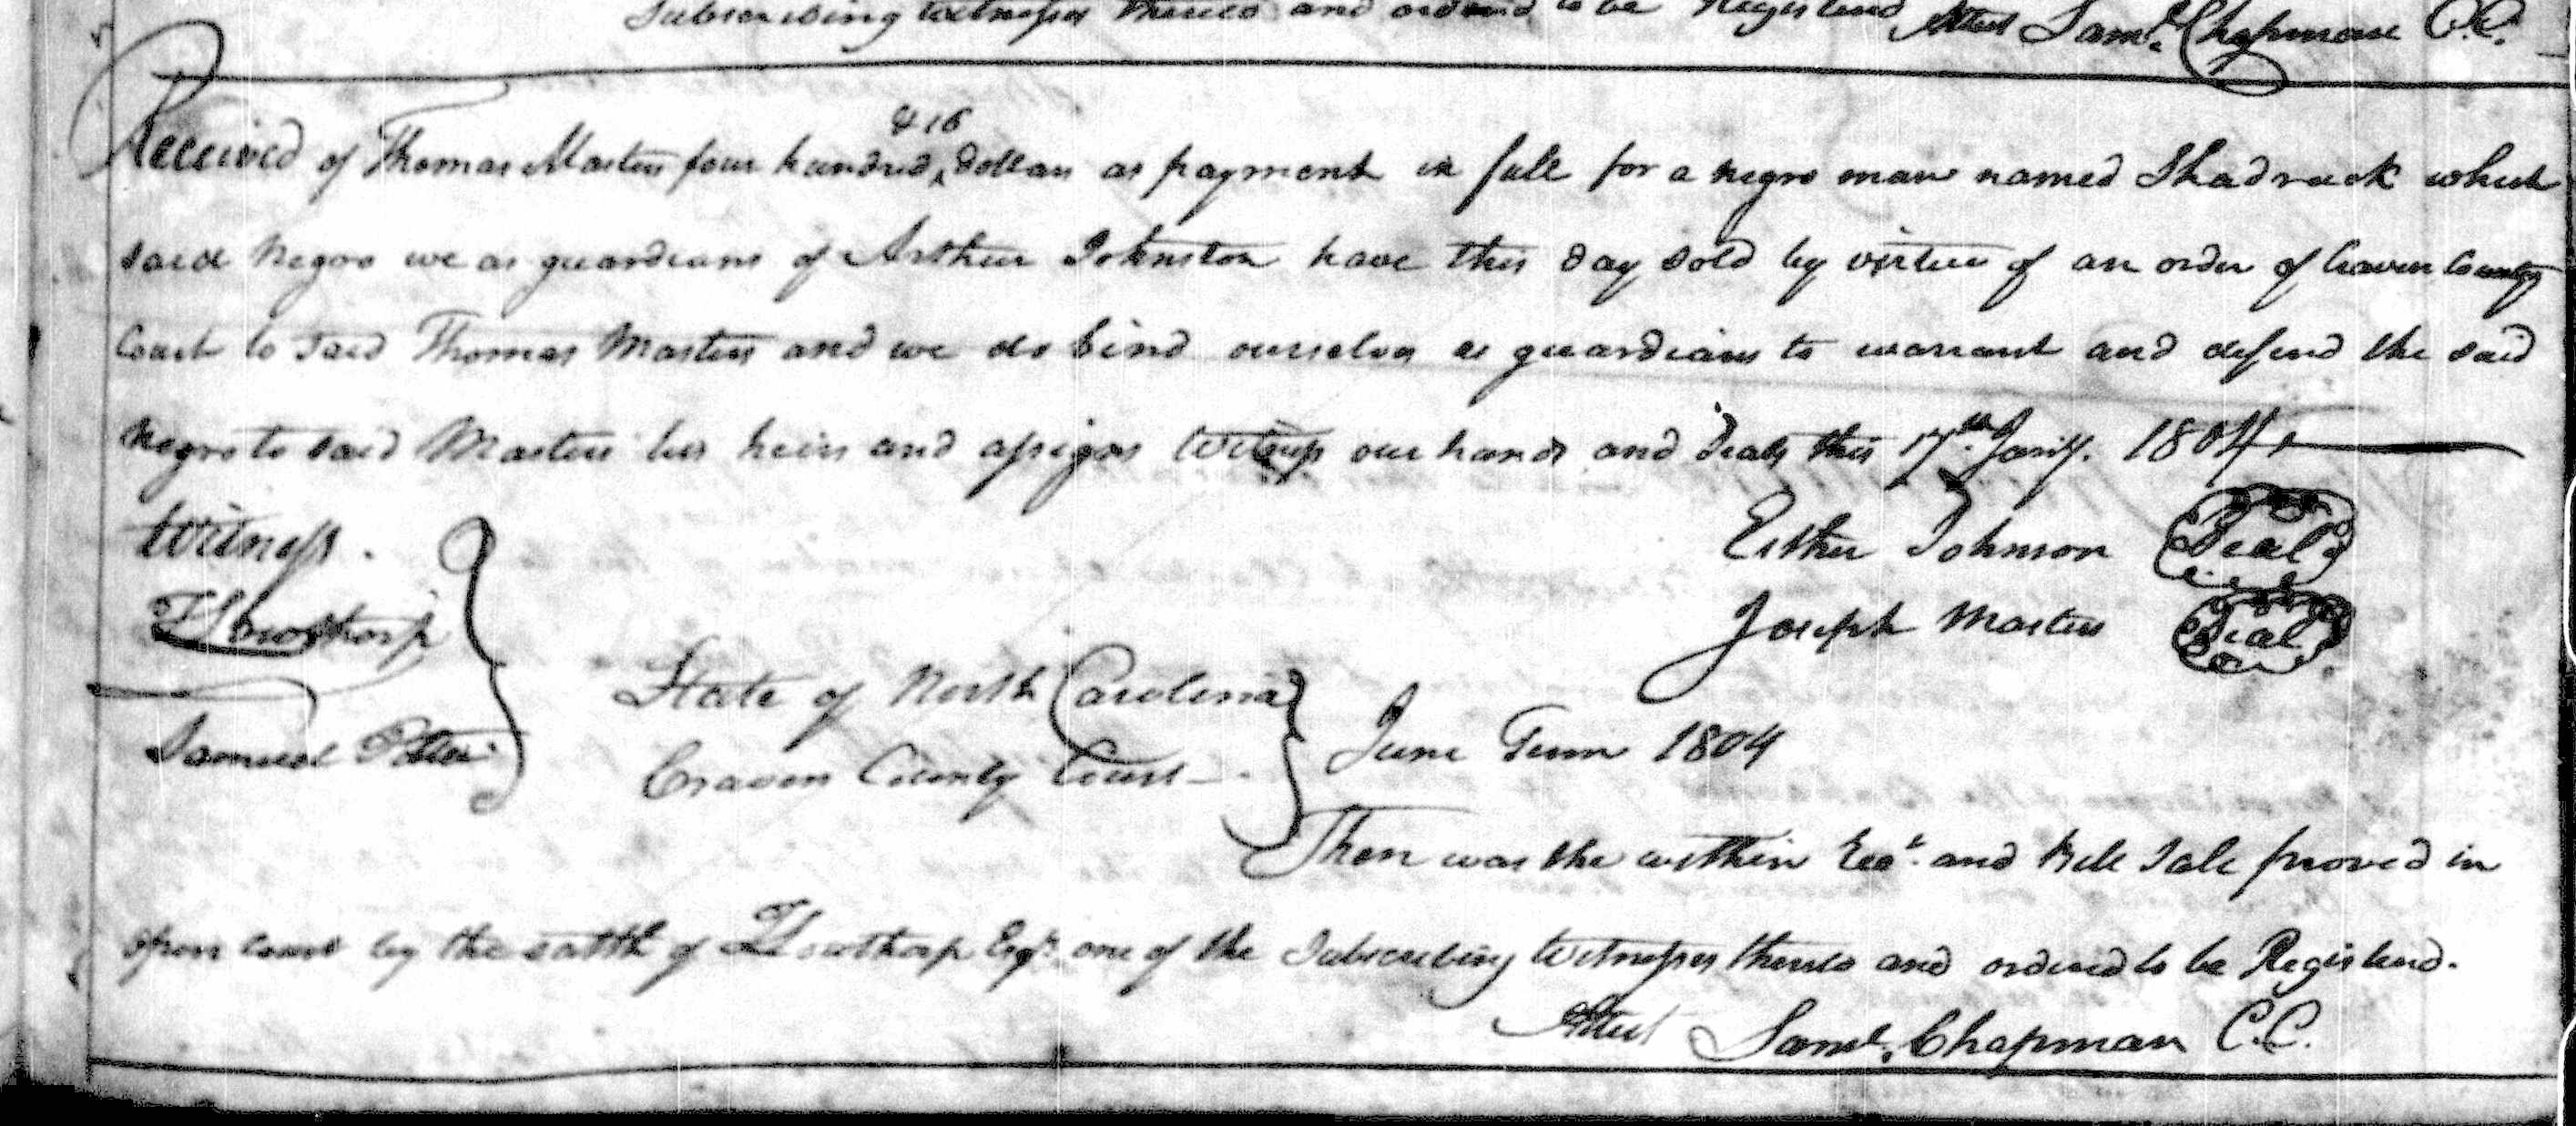 Subscribing Witnesses thereto and ordered to be Registered Attest Saml. Chapman C.C.
& 16
Received of Thomas Masters four hundred ^ dollars as payment in full for a negro man named Shadrack which
said Negro we as guardians of Arthur Johnston have this day sold by virtue of an order of Craven County
Court to said Thomas Masters and we do bind ourselves as guardians to warrant and defend the said
Negro to said Masters his heirs and assigns Witness our hands and Seals this 17th. Jany. 1804
Witness.
Esther Johnson Seal
Joseph Masters Seal
Samuel
State of North Carolina
Craven County Court
June Term 1804
Then was the within Rect. and Bill Sale proved in
open Court by the oath of Esqr. one of the Subscribing Witnesses thereto and ordered to be Registered.
Attest Saml. Chapman C.C.